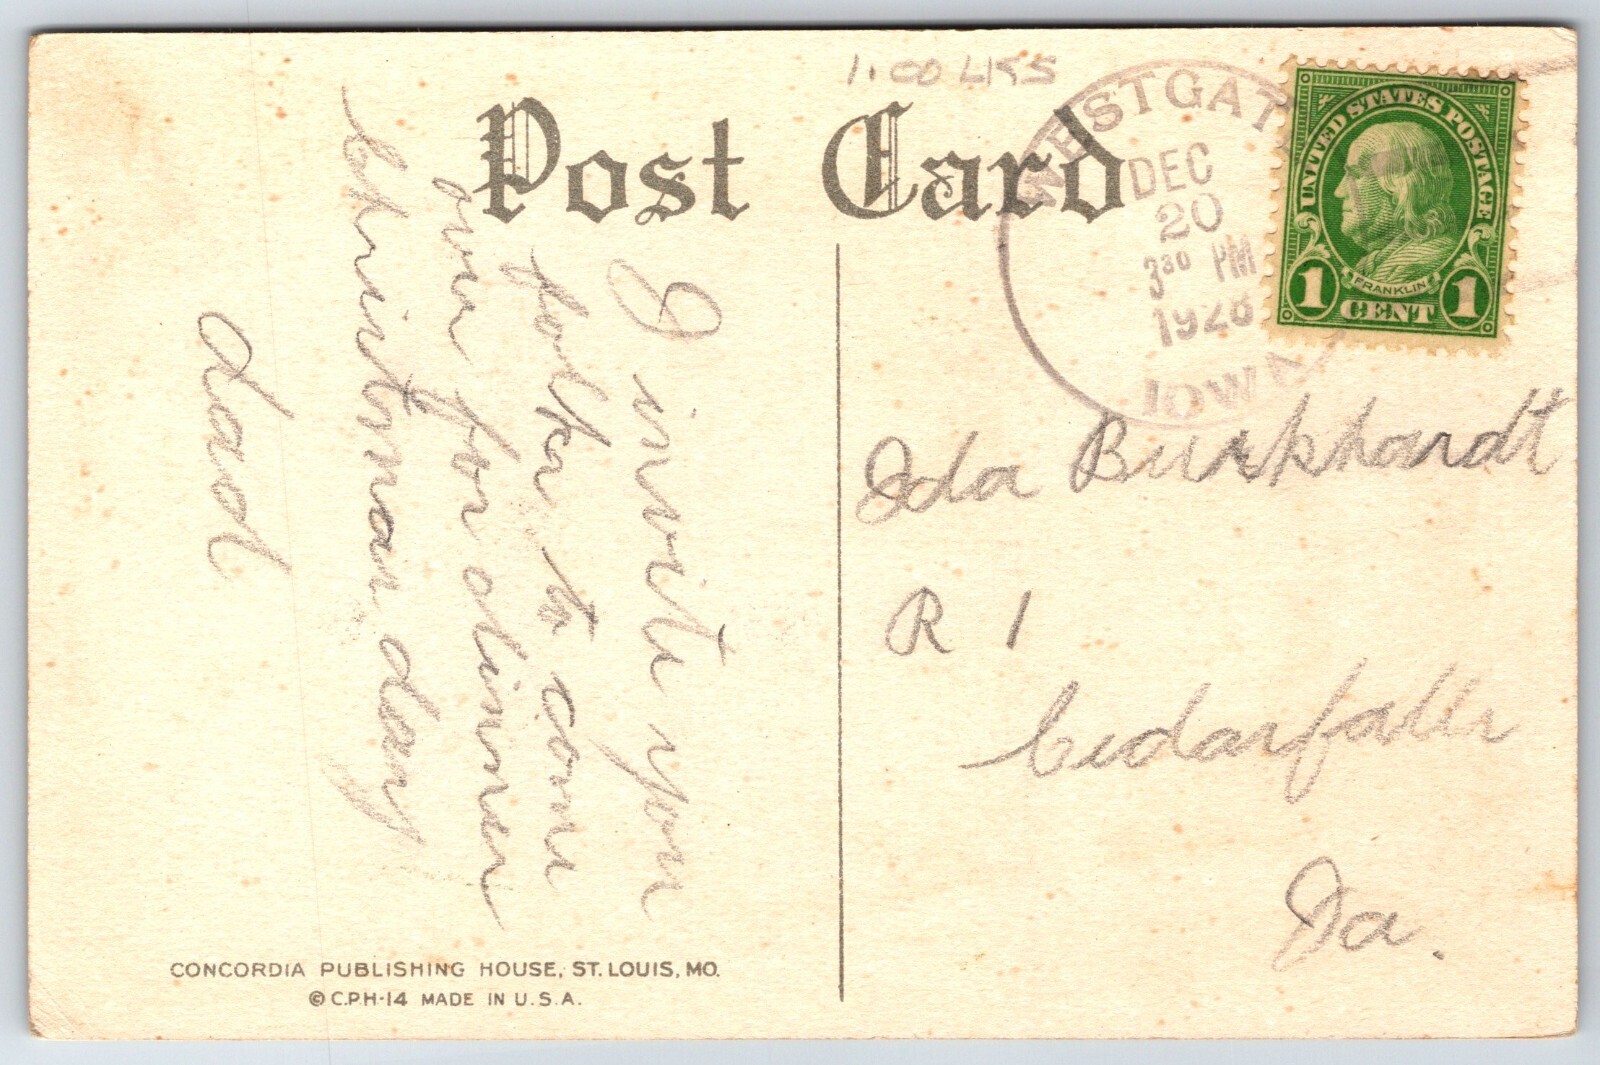 1.00 LKS
Post Card
WESTGATE
DEC
20
3 30 PM
1928
IOWA
UNITED STATES POSTAGE
FRANKLIN
1 CENT 1
I invite you
folks to come
over for dinner
Christmas day
Ida Burkhardt
R 1
Cedarfalls
Ia.
CONCORDIA PUBLISHING HOUSE, ST. LOUIS, MO.
© C.P.H-14 MADE IN U.S.A.